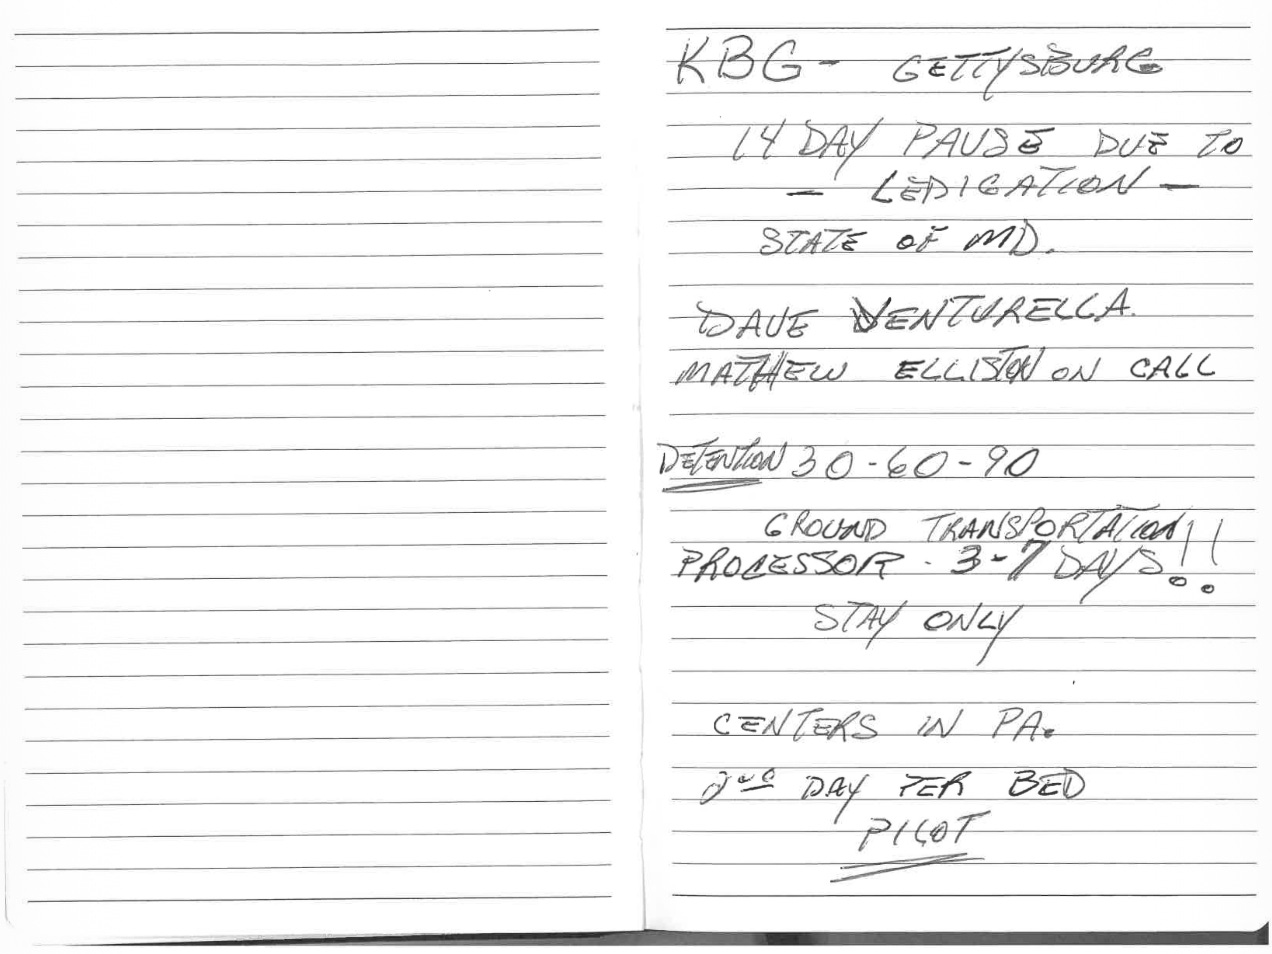 KBG - GETTYSBURG
14 DAY PAUSE DUE TO
- LEDIGATION -
STATE OF MD.
DAVE VENTURELLA.
MATHEW ELLISTON ON CALL
DETENTION 30-60-90
GROUND TRANSPORTATION!!
PROCESSOR - 3-7 DAYS!!
STAY ONLY
CENTERS IN PA.
2ND DAY PER BED
PILOT